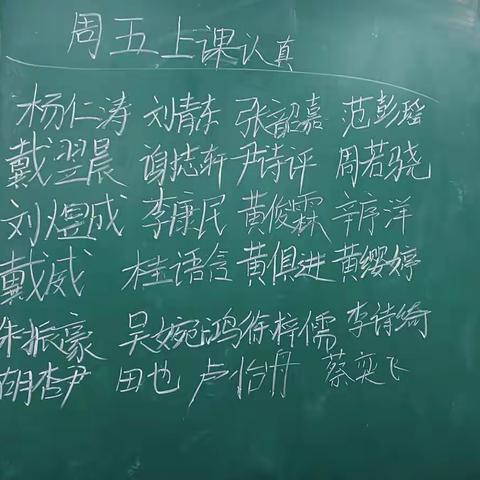 周五上课认真
杨仁涛 刘青东 张韶嘉 范彭瑶
戴翌晨 谢志轩 尹诗评 周若骁
刘煜成 李康民 黄俊霖 辛序洋
戴威 桂语含 黄俱进 黄缨婷
朱振豪 吴婉鸿 徐梓儒 李诗绮
胡杏尹 田也 卢怡冉 蔡奕飞